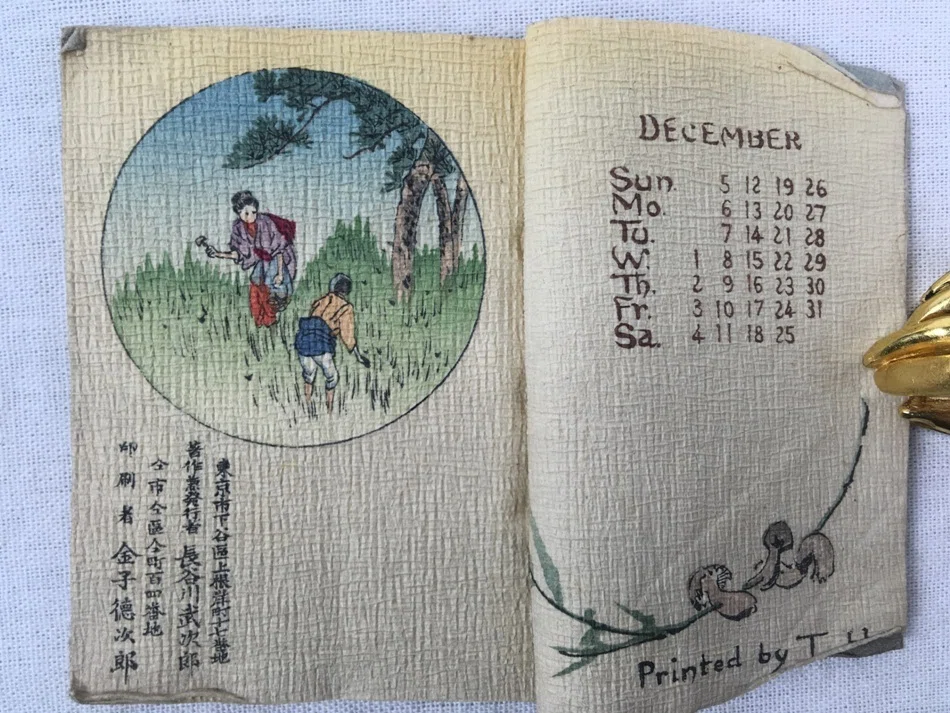 東京市下谷區上根岸町十七番地
著作兼発行者 長谷川武次郎
仝市仝區仝町百四番地
印刷者 金子德次郎
DECEMBER
Sun. 5 12 19 26
Mo. 6 13 20 27
Tu. 7 14 21 28
W. 1 8 15 22 29
Th. 2 9 16 23 30
Fr. 3 10 17 24 31
Sa. 4 11 18 25
Printed by T